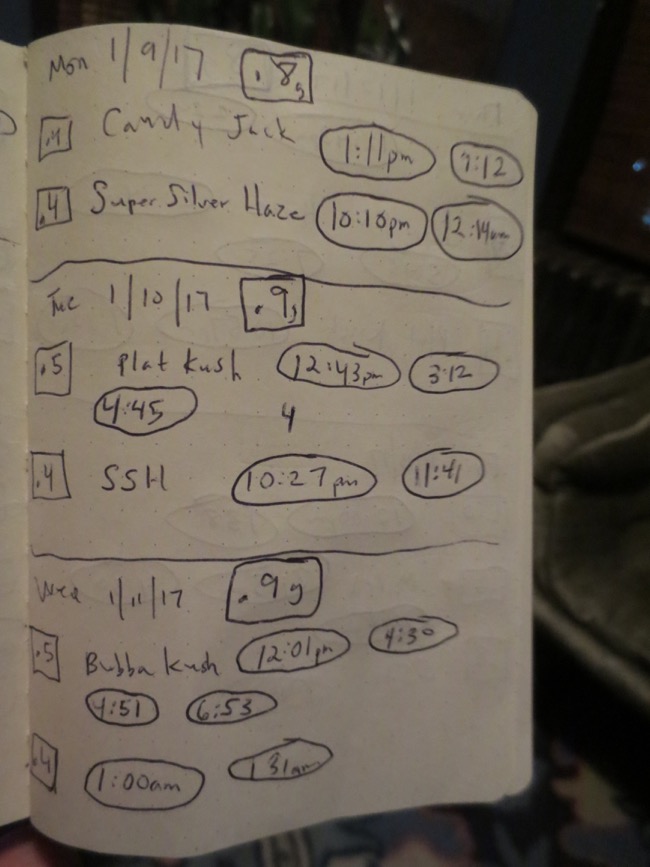 Mon 1/9/17 .8g
.4 Candy Jack 1:11pm :12
.4 Super Silver Haze 10:10pm 12:14am
Tue 1/10/17 .9g
.5 Plat Kush 12:43pm 3:12
4:45 4
.4 SSH 10:27pm 11:41
Wed 1/11/17 .9g
.5 Bubba Kush 12:01pm 4:30
4:51 6:53
.4 1:00am 1 31am